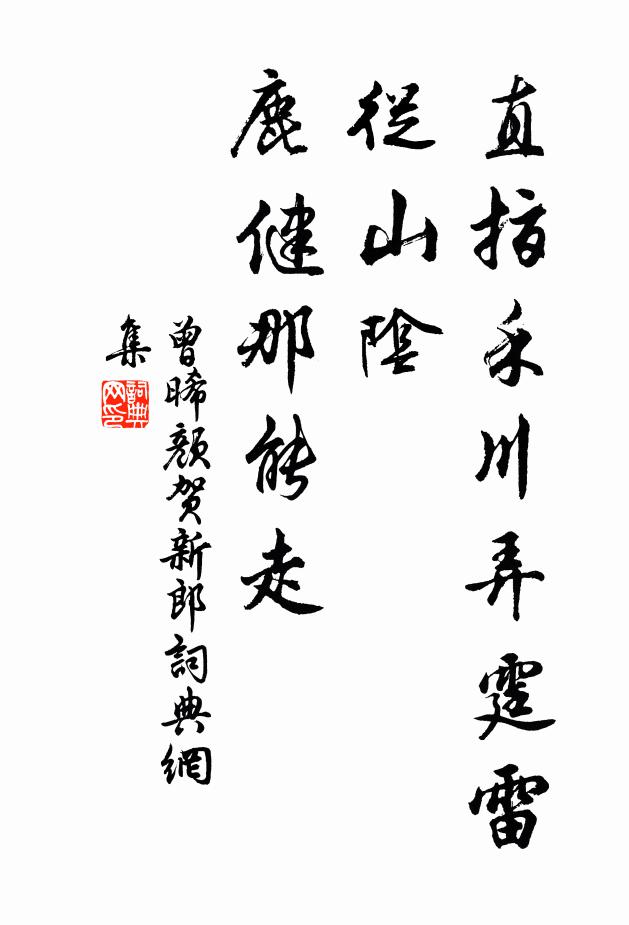 直指禾川弄霆雷
從山陰
鹿健那能走
曾晞顏賀新郎詞典網
集
詞典網印